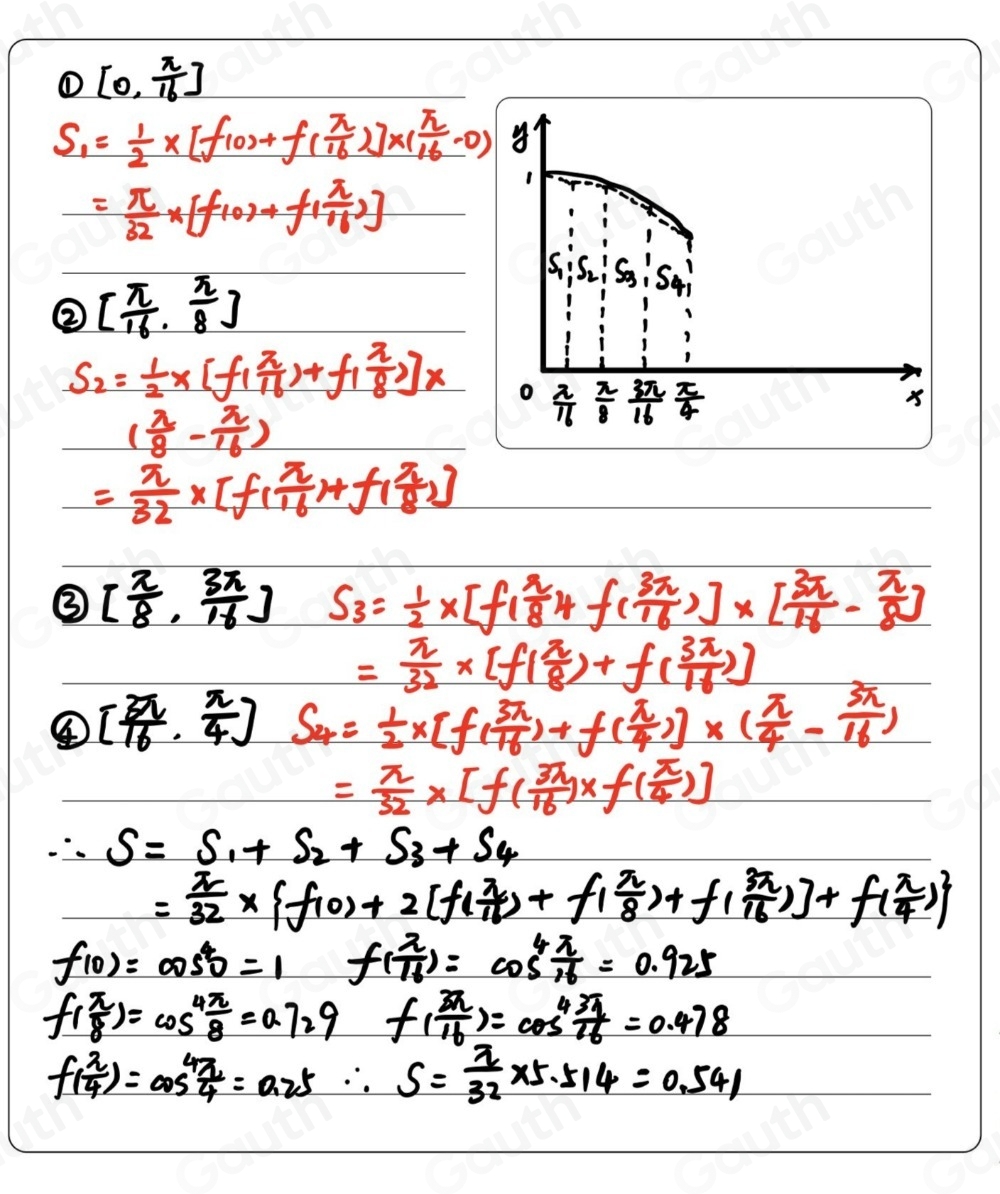 ① [0, π/16]
S₁ = 1/2 × [f(0) + f(π/16)] × (π/16 - 0)
= π/32 × [f(0) + f(π/16)]
② [π/16, π/8]
S₂ = 1/2 × [f(π/16) + f(π/8)] ×
(π/8 - π/16)
= π/32 × [f(π/16) + f(π/8)]
y
1
S₁ S₂ S₃ S₄
0 π/16 π/8 3π/16 π/4 x
③ [π/8, 3π/16] S₃ = 1/2 × [f(π/8) + f(3π/16)] × [3π/16 - π/8]
= π/32 × [f(π/8) + f(3π/16)]
④ [3π/16, π/4] S₄ = 1/2 × [f(3π/16) + f(π/4)] × (π/4 - 3π/16)
= π/32 × [f(3π/16) × f(π/4)]
∴ S = S₁ + S₂ + S₃ + S₄
= π/32 × {f(0) + 2[f(π/16) + f(π/8) + f(3π/16)] + f(π/4)}
f(0) = cos⁴0 = 1 f(π/16) = cos⁴ π/16 = 0.925
f(π/8) = cos⁴ π/8 = 0.729 f(3π/16) = cos⁴ 3π/16 = 0.478
f(π/4) = cos⁴ π/4 = 0.25 ∴ S = π/32 × 5.514 = 0.541
Gauth